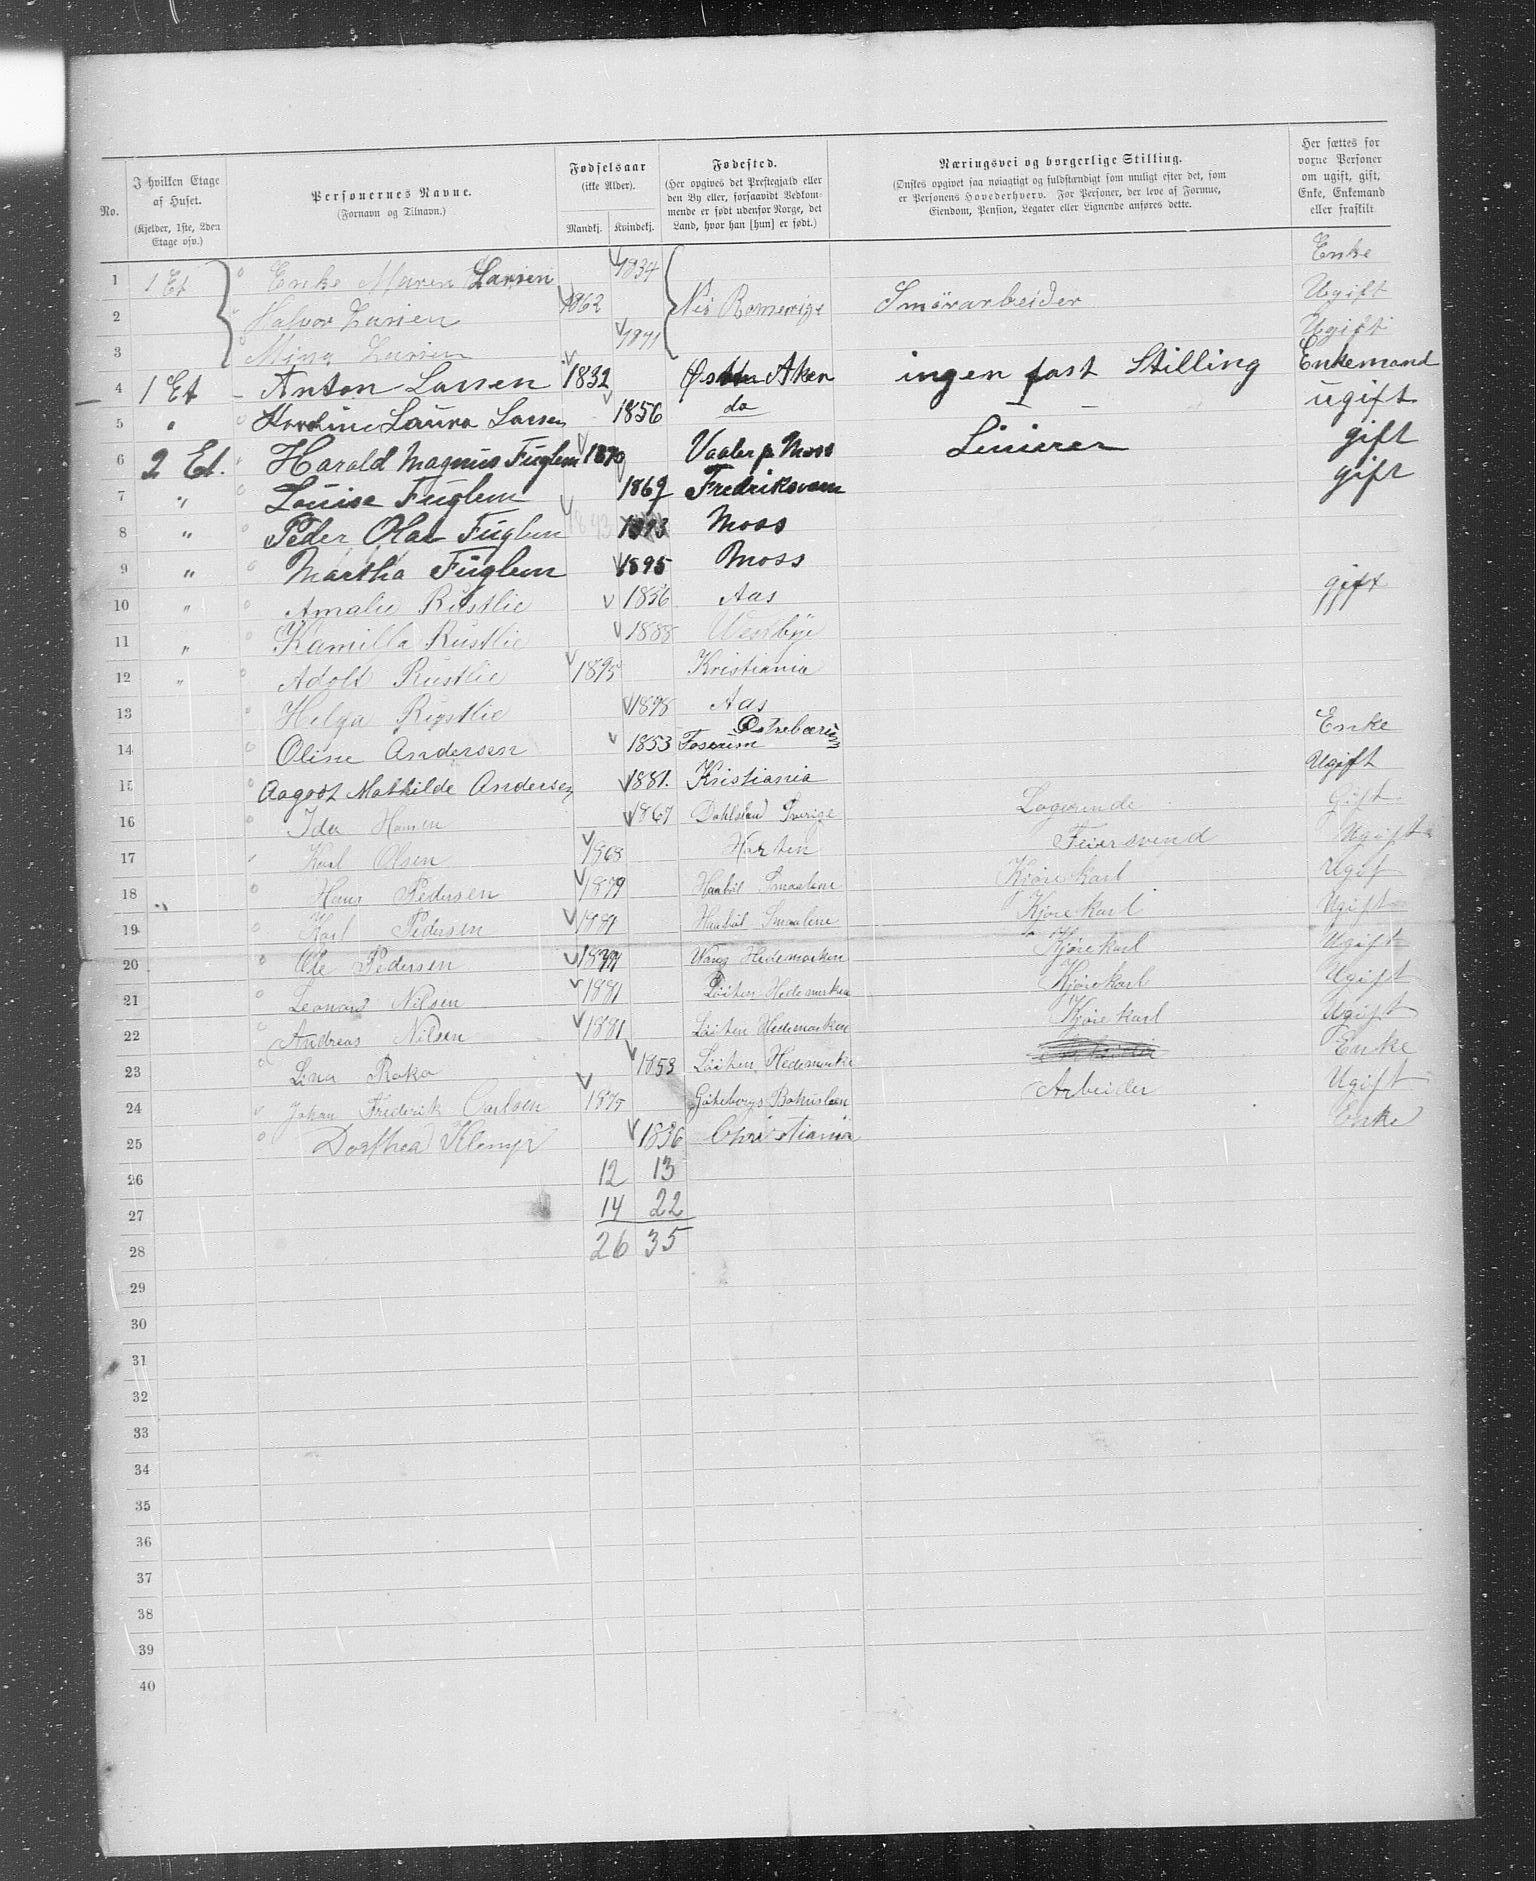 No.
I hvilken Etage af Huset.
(Kjelder, 1ste, 2den Etage osv.)
Personernes Navne.
(Fornavn og Tilnavn.)
Fødselsaar
(ikke Alder).
Mandkj. Kvindekj.
Fødested.
(Her opgives det Prestegjald eller den By eller, forsaavidt Vedkommende er født udenfor Norge, det Land, hvor han [hun] er født.)
Næringsvei og borgerlige Stilling.
(Ønskes opgivet saa nøiagtigt og fuldstændigt som muligt efter det, som er Personens Hovederhverv. For Personer, der leve af Formue, Eiendom, Pension, Legater eller Lignende anføres dette.
Her sættes for voxne Personer om ugift, gift, Enke, Enkemand eller fraskilt
1 1 Et Enke Maren Larsen 1834 Enke
2 Halvor Larsen 1862 Nes Romerige Smörarbeider Ugift
3 Mina Larsen 1871 Ugift
4 1 Et Anton Larsen 1832 Østre Aker ingen fast Stilling Enkemand
5 " Laura Larsen 1856 do — — ugift
6 2 Et. Harald Magnus Fuglem 1870 Vaaler p Moss Linierer gift
7 " Louise Fuglem 1869 Fredriksværn gift
8 " Peder Olaf Fuglem 1893 1893 Moss
9 " Martha Fuglem 1895 Moss
10 " Amalie Rustlie 1856 Aas gift
11 " Kamilla Rustlie 1888 Westbye
12 " Adolf Rustlie 1895 Kristiania
13 Helga Rustlie 1898 Aas
14 Oline Andersen 1853 Østrebærum Enke
15 Aagodt Mathilde Andersen 1881. Kristiania Ugift
16 Ida Hansen 1867 Dahlsland Sverige Logerende Gift
17 Karl Olsen 1868 Horten Feiersvend Ugift
18 Hans Pedersen 1879 Haabøl Smaalene Kjørekarl Ugift
19 Karl Pedersen 1881 Haabøl Smaalene Kjørekarl Ugift
20 Ole Pedersen 1879 Vang Hedemarken Kjørekarl Ugift
21 Leonard Nilsen 1881 Löiten Hedemarken Kjørekarl Ugift
22 Andreas Nilsen 1881 Löiten Hedemarken Kjørekarl Ugift
23 Lina Roko 1853 Löiten Hedemarke Enke
24 Johan Frederik Carlsen 1875 Göteborgs Bohuslæn Arbeider Ugift
25 Dorthea Klemp 1836 Christiania Enke
26 12 13
27 14 22
28 26 35
29
30
31
32
33
34
35
36
37
38
39
40